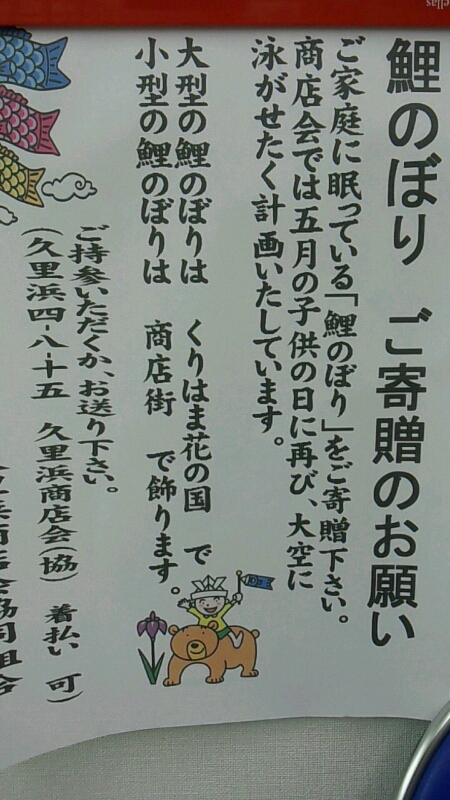 鯉のぼり ご寄贈のお願い
ご家庭に眠っている「鯉のぼり」をご寄贈下さい。
商店会では五月の子供の日に再び、大空に
泳がせたく計画いたしています。
大型の鯉のぼりは くりはま花の国 で
小型の鯉のぼりは 商店街 で飾ります。
ご持参いただくか、お送り下さい。
(久里浜四-八-十五 久里浜商店会(協) 着払い 可)